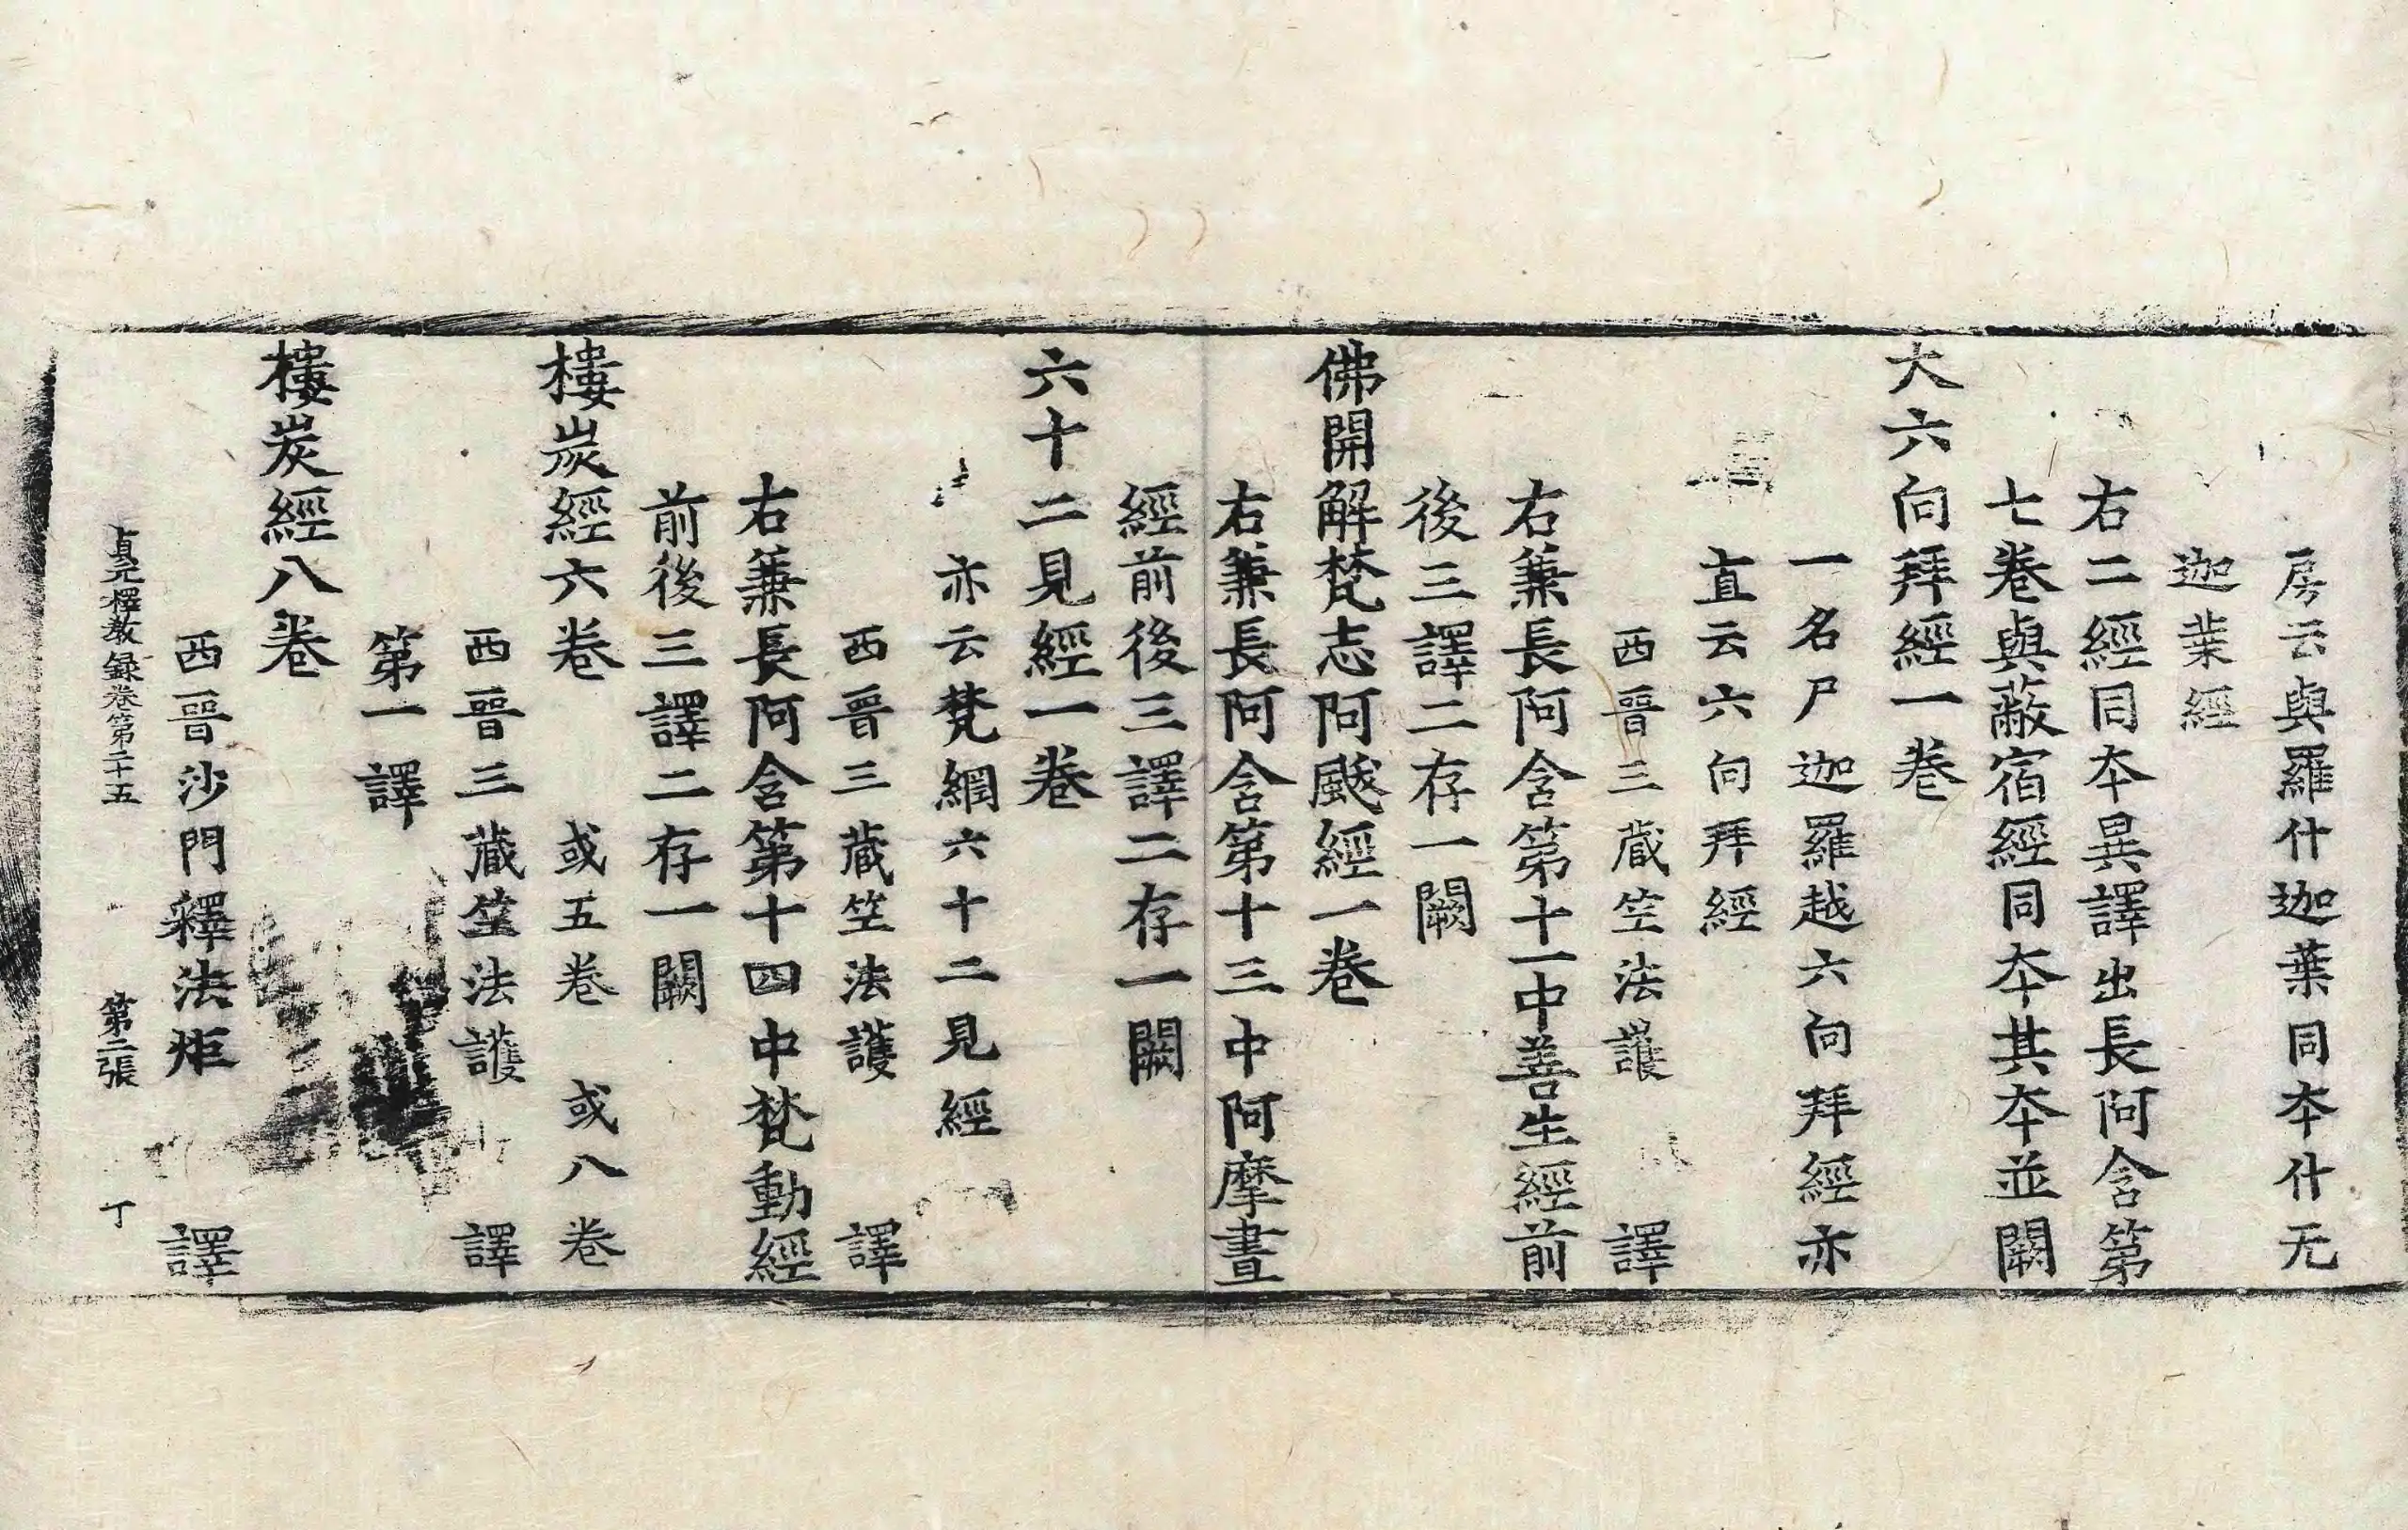 房云與羅什迦葉同夲什无
迦葉經
右二經同夲異譯出長阿含第
七卷與蔽宿經同夲其夲並闕
大六向拜經一卷
一名尸迦羅越六向拜經亦
直云六向拜經
西晉三藏笁法護譯
右兼長阿含第十一中善生經前
後三譯二存一闕
佛開解梵志阿颰經一卷
右兼長阿含第十三中阿摩晝
經前後三譯二存一闕
六十二見經一卷
亦云梵網六十二見經
西晉三藏笁法護譯
右兼長阿含第十四中梵動經
前後三譯二存一闕
樓炭經六卷 或五卷 或八卷
西晉三藏笁法護譯
第一譯
樓炭經八卷
西晉沙門釋法炬譯
貞元釋教録卷第二十五 第二張 丁